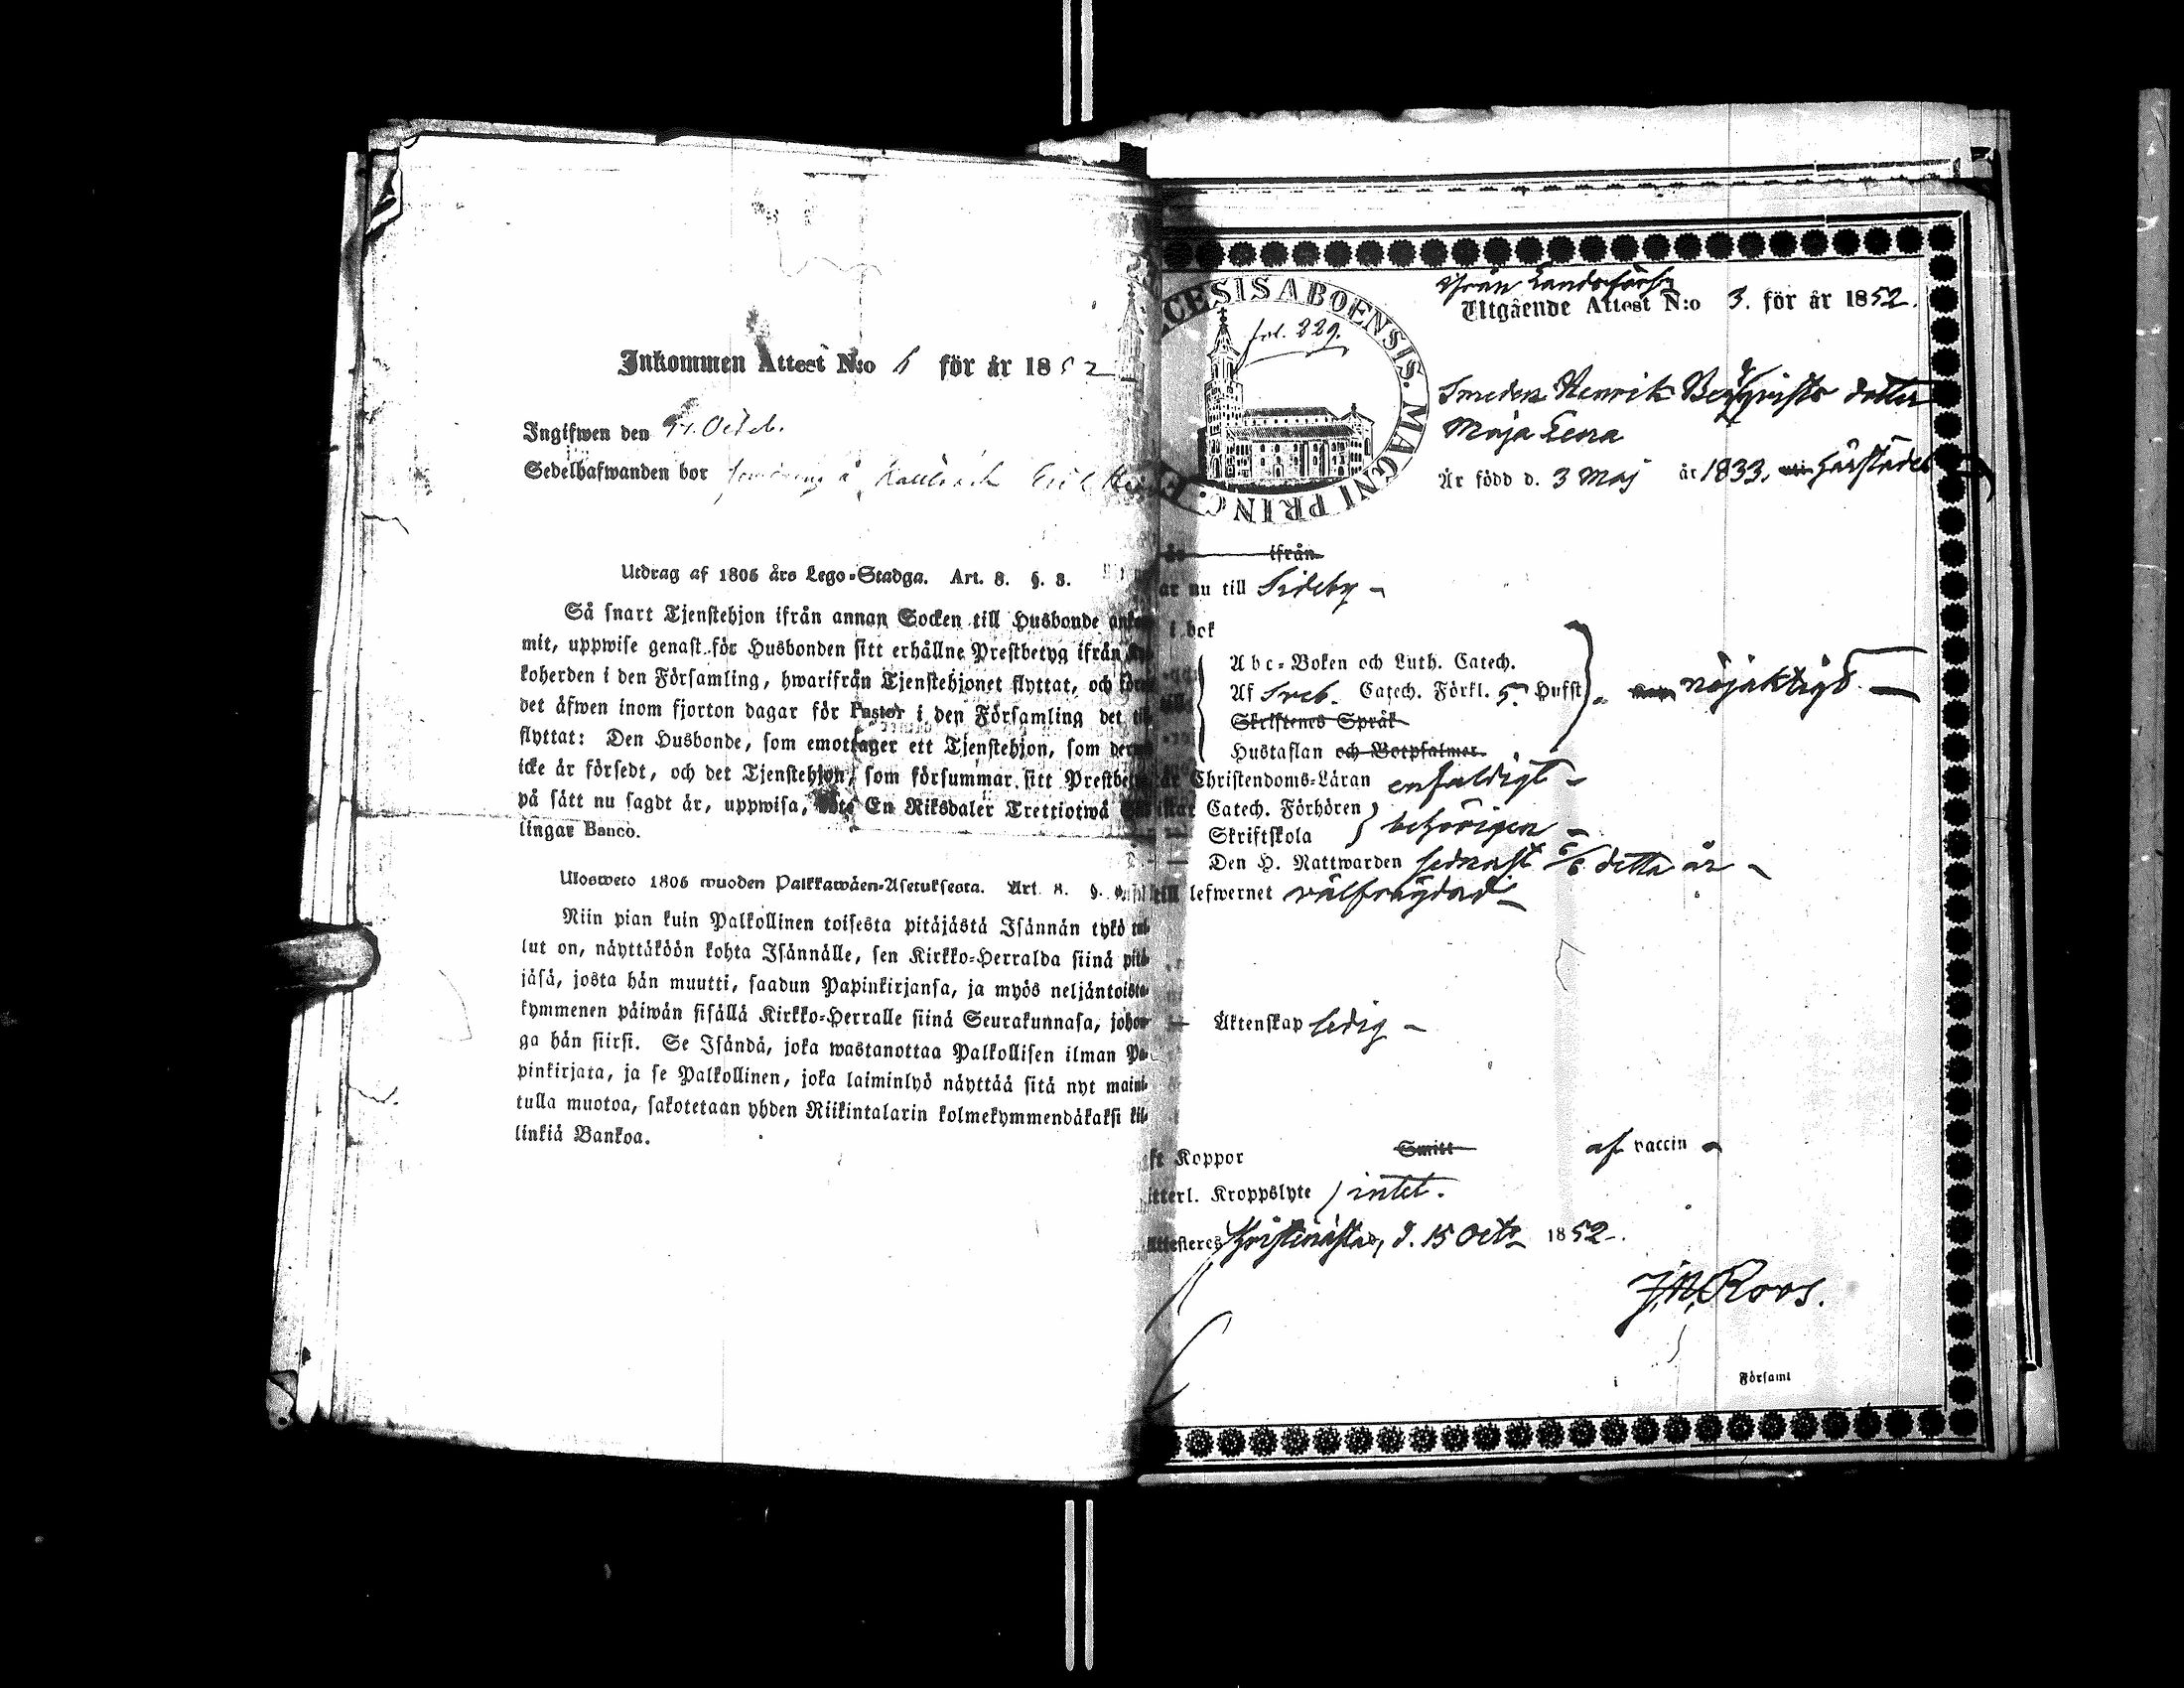 Inkommen Attest N:o 6 för år 1852
Ingifwen den Octob.
Sedelhafwanden bor å
Utdrag af 1805 års Lego-Stadga. Art. 8. §. 8.
Så snart Tjenstehjon ifrån annan Socken till Husbonde
mit, uppwise genast för Husbonden sitt erhållne Prestbetyg ifrån
koherden i den Församling, hwarifrån Tjenstehjonet flyttat, och
det äfwen inom fjorton dagar för Pastor i den Församling det
flyttat: Den Husbonde, som emottager ett Tjenstehjon, som
icke är försedt, och det Tjenstehjon, som försummar sitt
på sätt nu sagdt är, uppwisa, böte En Riksdaler Trettiotwå
lingar Banco.
Ulosweto 1805 wuoden Palkkawäen-Asetuksesta. Art. 8. §.
Niin pian kuin Palkollinen toisesta pitäjästä Isännän tykö
lut on, näyttäköön kohta Isännälle, sen Kirkko-Herralda siinä pitä-
jäsä, josta hän muutti, saadun Papinkirjansa, ja myös neljäntoista-
kymmenen päiwän sisällä Kirkko-Herralle siinä Seurakunnasa, johon-
ga hän siirsi. Se Isändä, joka wastanottaa Palkollisen ilman Pa-
pinkirjata, ja se Palkollinen, joka laiminlyö näyttää sitä nyt mainit-
tulla muotoa, sakotetaan yhden Riikintalarin kolmekymmendäkaksi kil-
linkiä Bankoa.
CESIS ABOENSIS. MAGNI PRINC. F
fol. 229.
Ifrån Landsförs:
Utgående Attest N:o 3. för år 1852.
Smeden Henrik Bergqvists dotter
Maja Lena
Är född d. 3 Maj år 1833, härstädes
ifrån
nu till Sideby
i bok
Abc-Boken och Luth. Catech.
Af Sveb. Catech. Förkl. 5. Hufst. nöjaktigt
Skriftenes Språk
Hustaflan och Botpsalmer.
Christendoms-Läran enfaldigt
Catech. Förhören
Skriftskola behörigen
Den H. Nattwarden sednast 6/6 detta år
till lefwernet välfrägdad
Äktenskap ledig
Koppor Smitt af vaccin
Kroppslyte intet.
Attesteres Kristinestad, d. 15 Octo 1852.
J.N. Roos.
i Församl